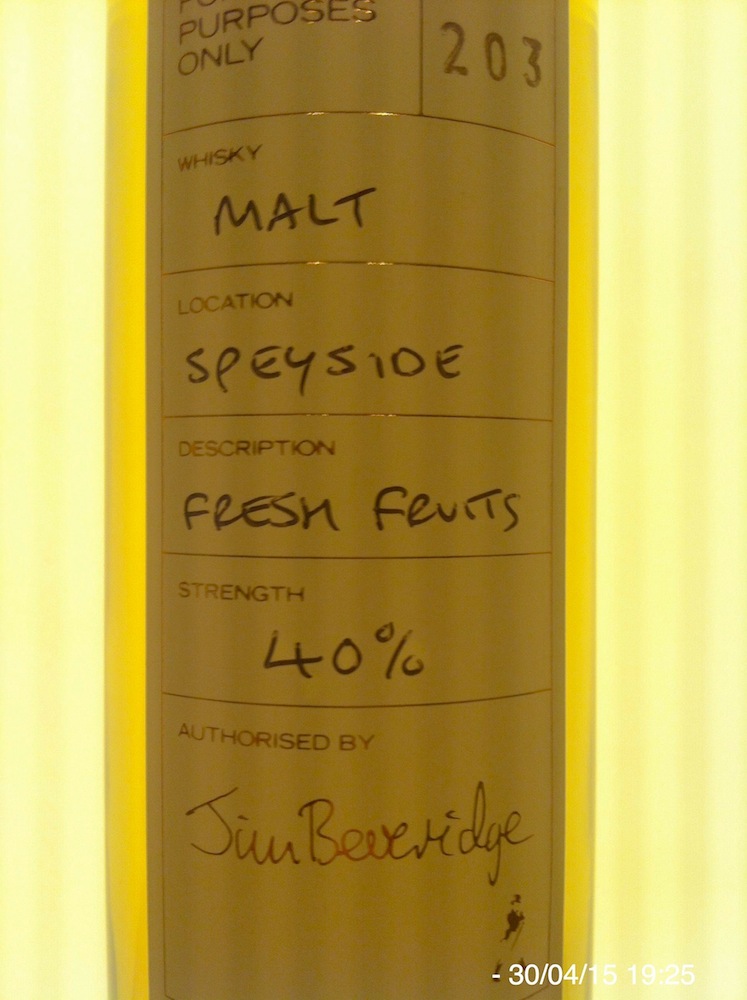 PURPOSES
ONLY
203
WHISKY
MALT
LOCATION
SPEYSIDE
DESCRIPTION
FRESH FRUITS
STRENGTH
40%
AUTHORISED BY
Jim Beveridge
- 30/04/15 19:25